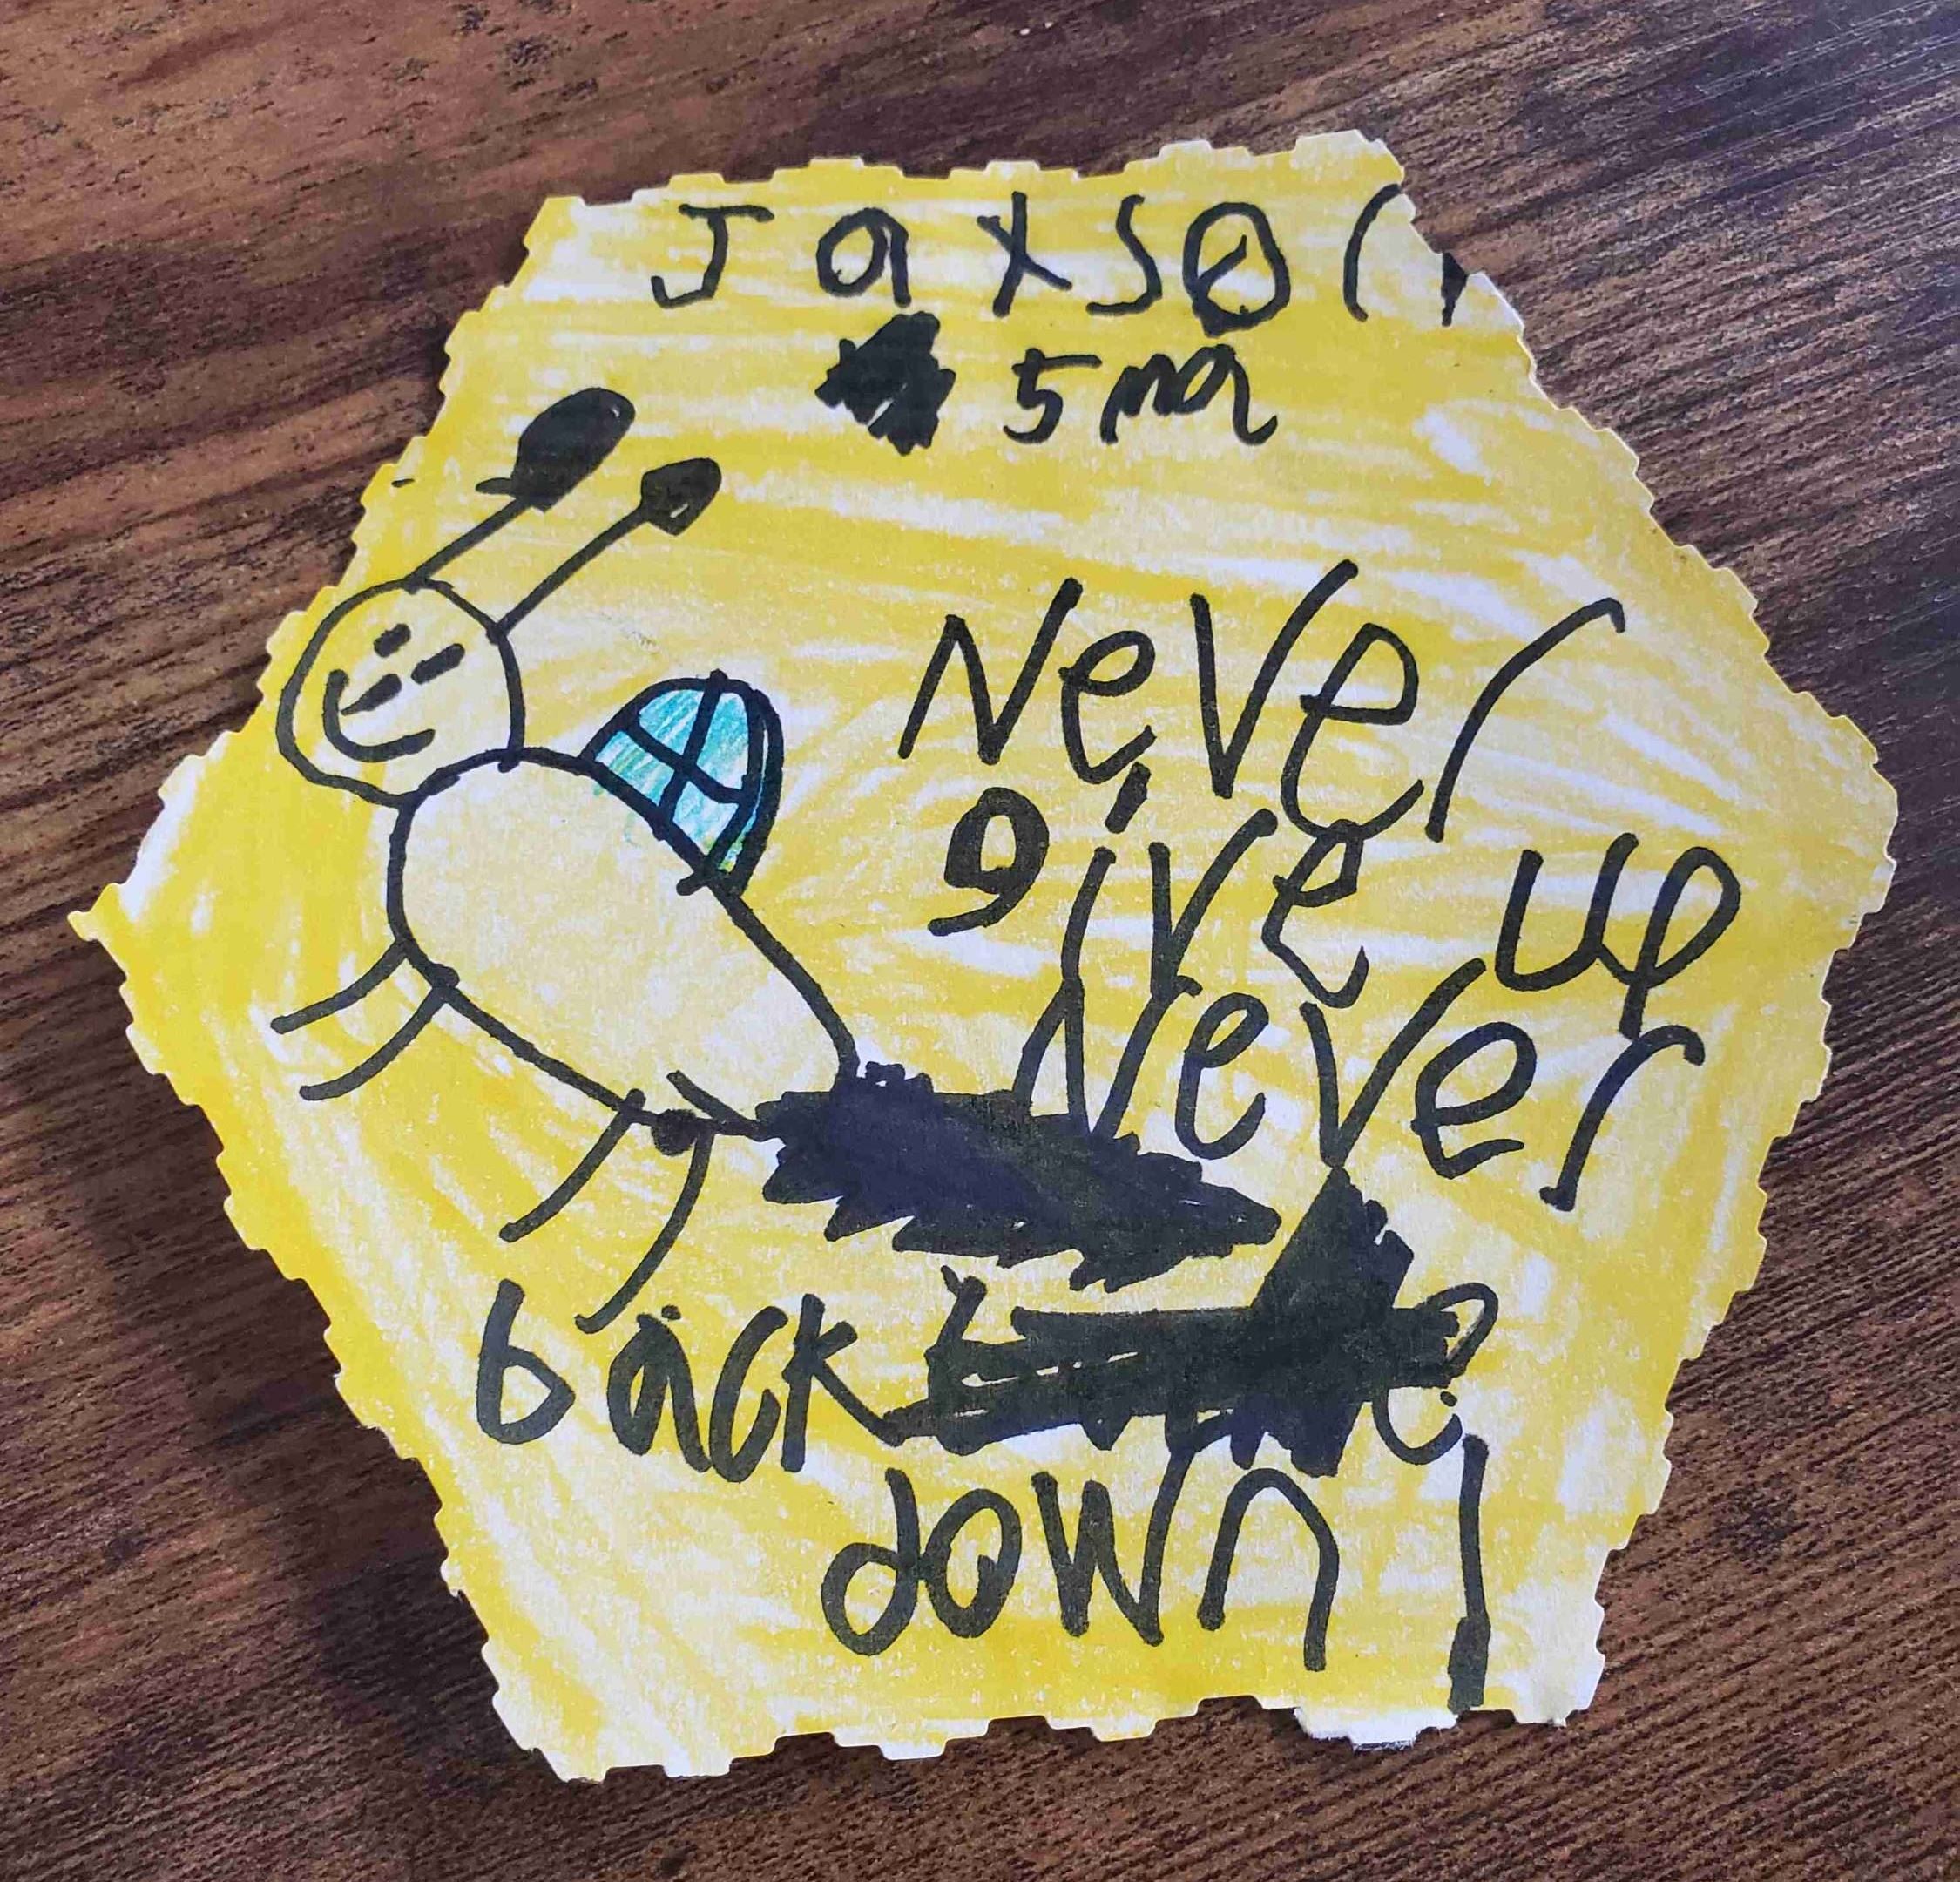 Jaxson
5ma
Never
give up
Never
back
down!